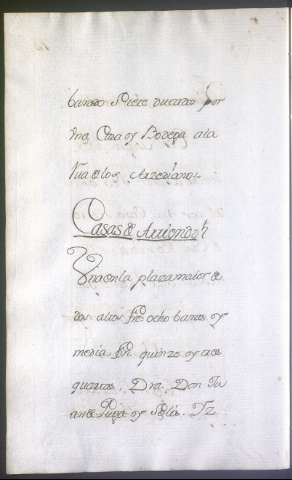 banos Siete ducados por
Una Cassa y Bodega a la
Rua de los
Casas de Arriendos
Una en la plaza maior de
dos altos fte ocho baras y
media fdo quinze y tres
quartas. Dra. Don Ju
an de Puga y Solis. Tz